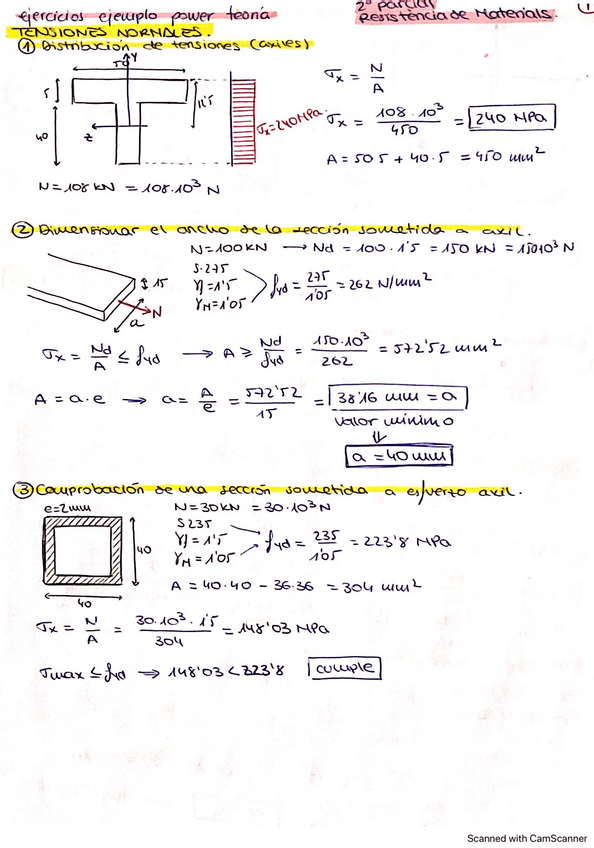 ejercicios ejemplo power teoría
2º parcial
Resistència de Materials.
1
TENSIONES NORMALES.
① Distribución de tensiones (axiles)
50
Y
5
12'5
40
z
σx=240MPa.
σx = N/A
σx = 108·10³/450 = 240 MPa
A = 50·5 + 40·5 = 450 mm²
N=108 kN = 108·10³ N
② Dimensionar el ancho de la sección sometida a axil.
N=100KN → Nd = 100·1'5 = 150 KN = 150·10³ N
S·275
γf=1'5
γM=1'05
fyd = 275/1'05 = 262 N/mm²
15
N
a
σx = Nd/A ≤ fyd → A ≥ Nd/fyd = 150·10³/262 = 572'52 mm²
A = a·e → a = A/e = 572'52/15 = 38'16 mm = a
valor mínimo
⇓
a = 40 mm
③ Comprobación de una sección sometida a esfuerzo axil.
e=2mm
40
40
N=30KN = 30·10³N
S235
γf=1'5
γM=1'05
fyd = 235/1'05 = 223'8 MPa
A = 40·40 − 36·36 = 304 mm²
σx = N/A = 30·10³·1'5/304 = 148'03 MPa
σmax ≤ fyd ⇒ 148'03 < 223'8 cumple
Scanned with CamScanner